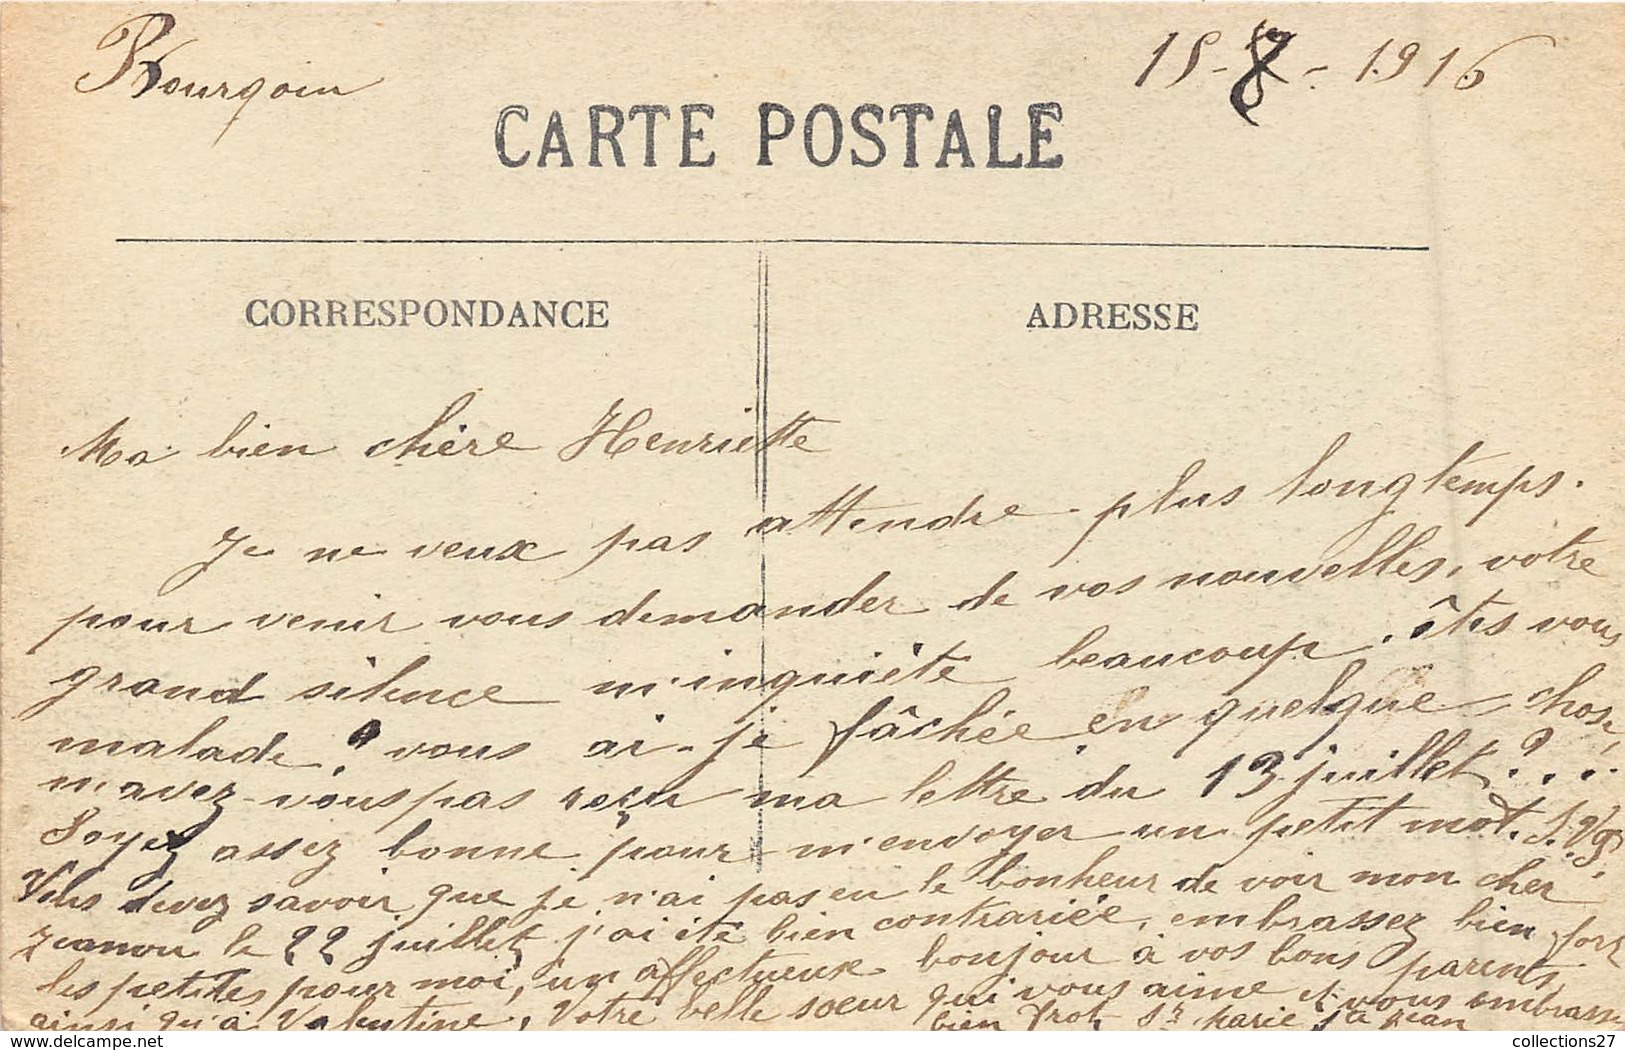 Bourgoin
15-8-1916
CARTE POSTALE
CORRESPONDANCE
ADRESSE
Ma bien chère Henriette
Je ne veux pas attendre plus longtemps.
pour venir vous demander de vos nouvelles, votre
grand silence m'inquiète beaucoup. êtes vous
malade? vous ai-je fâchée en quelque chose,
m'avez-vous pas reçu ma lettre du 13 juillet?...
Soyez assez bonne pour m'envoyer un petit mot. S.V.P.
Vous devez savoir que je n'ai pas eu le bonheur de voir mon cher
Jeanou le 22 juillet, j'ai été bien contrariée, embrassez bien fort
les petites pour moi, un affectueux bonjour à vos bons parents
ainsi qu'à Valentine, Votre belle soeur qui vous aime et vous embrasse
bien
collections27